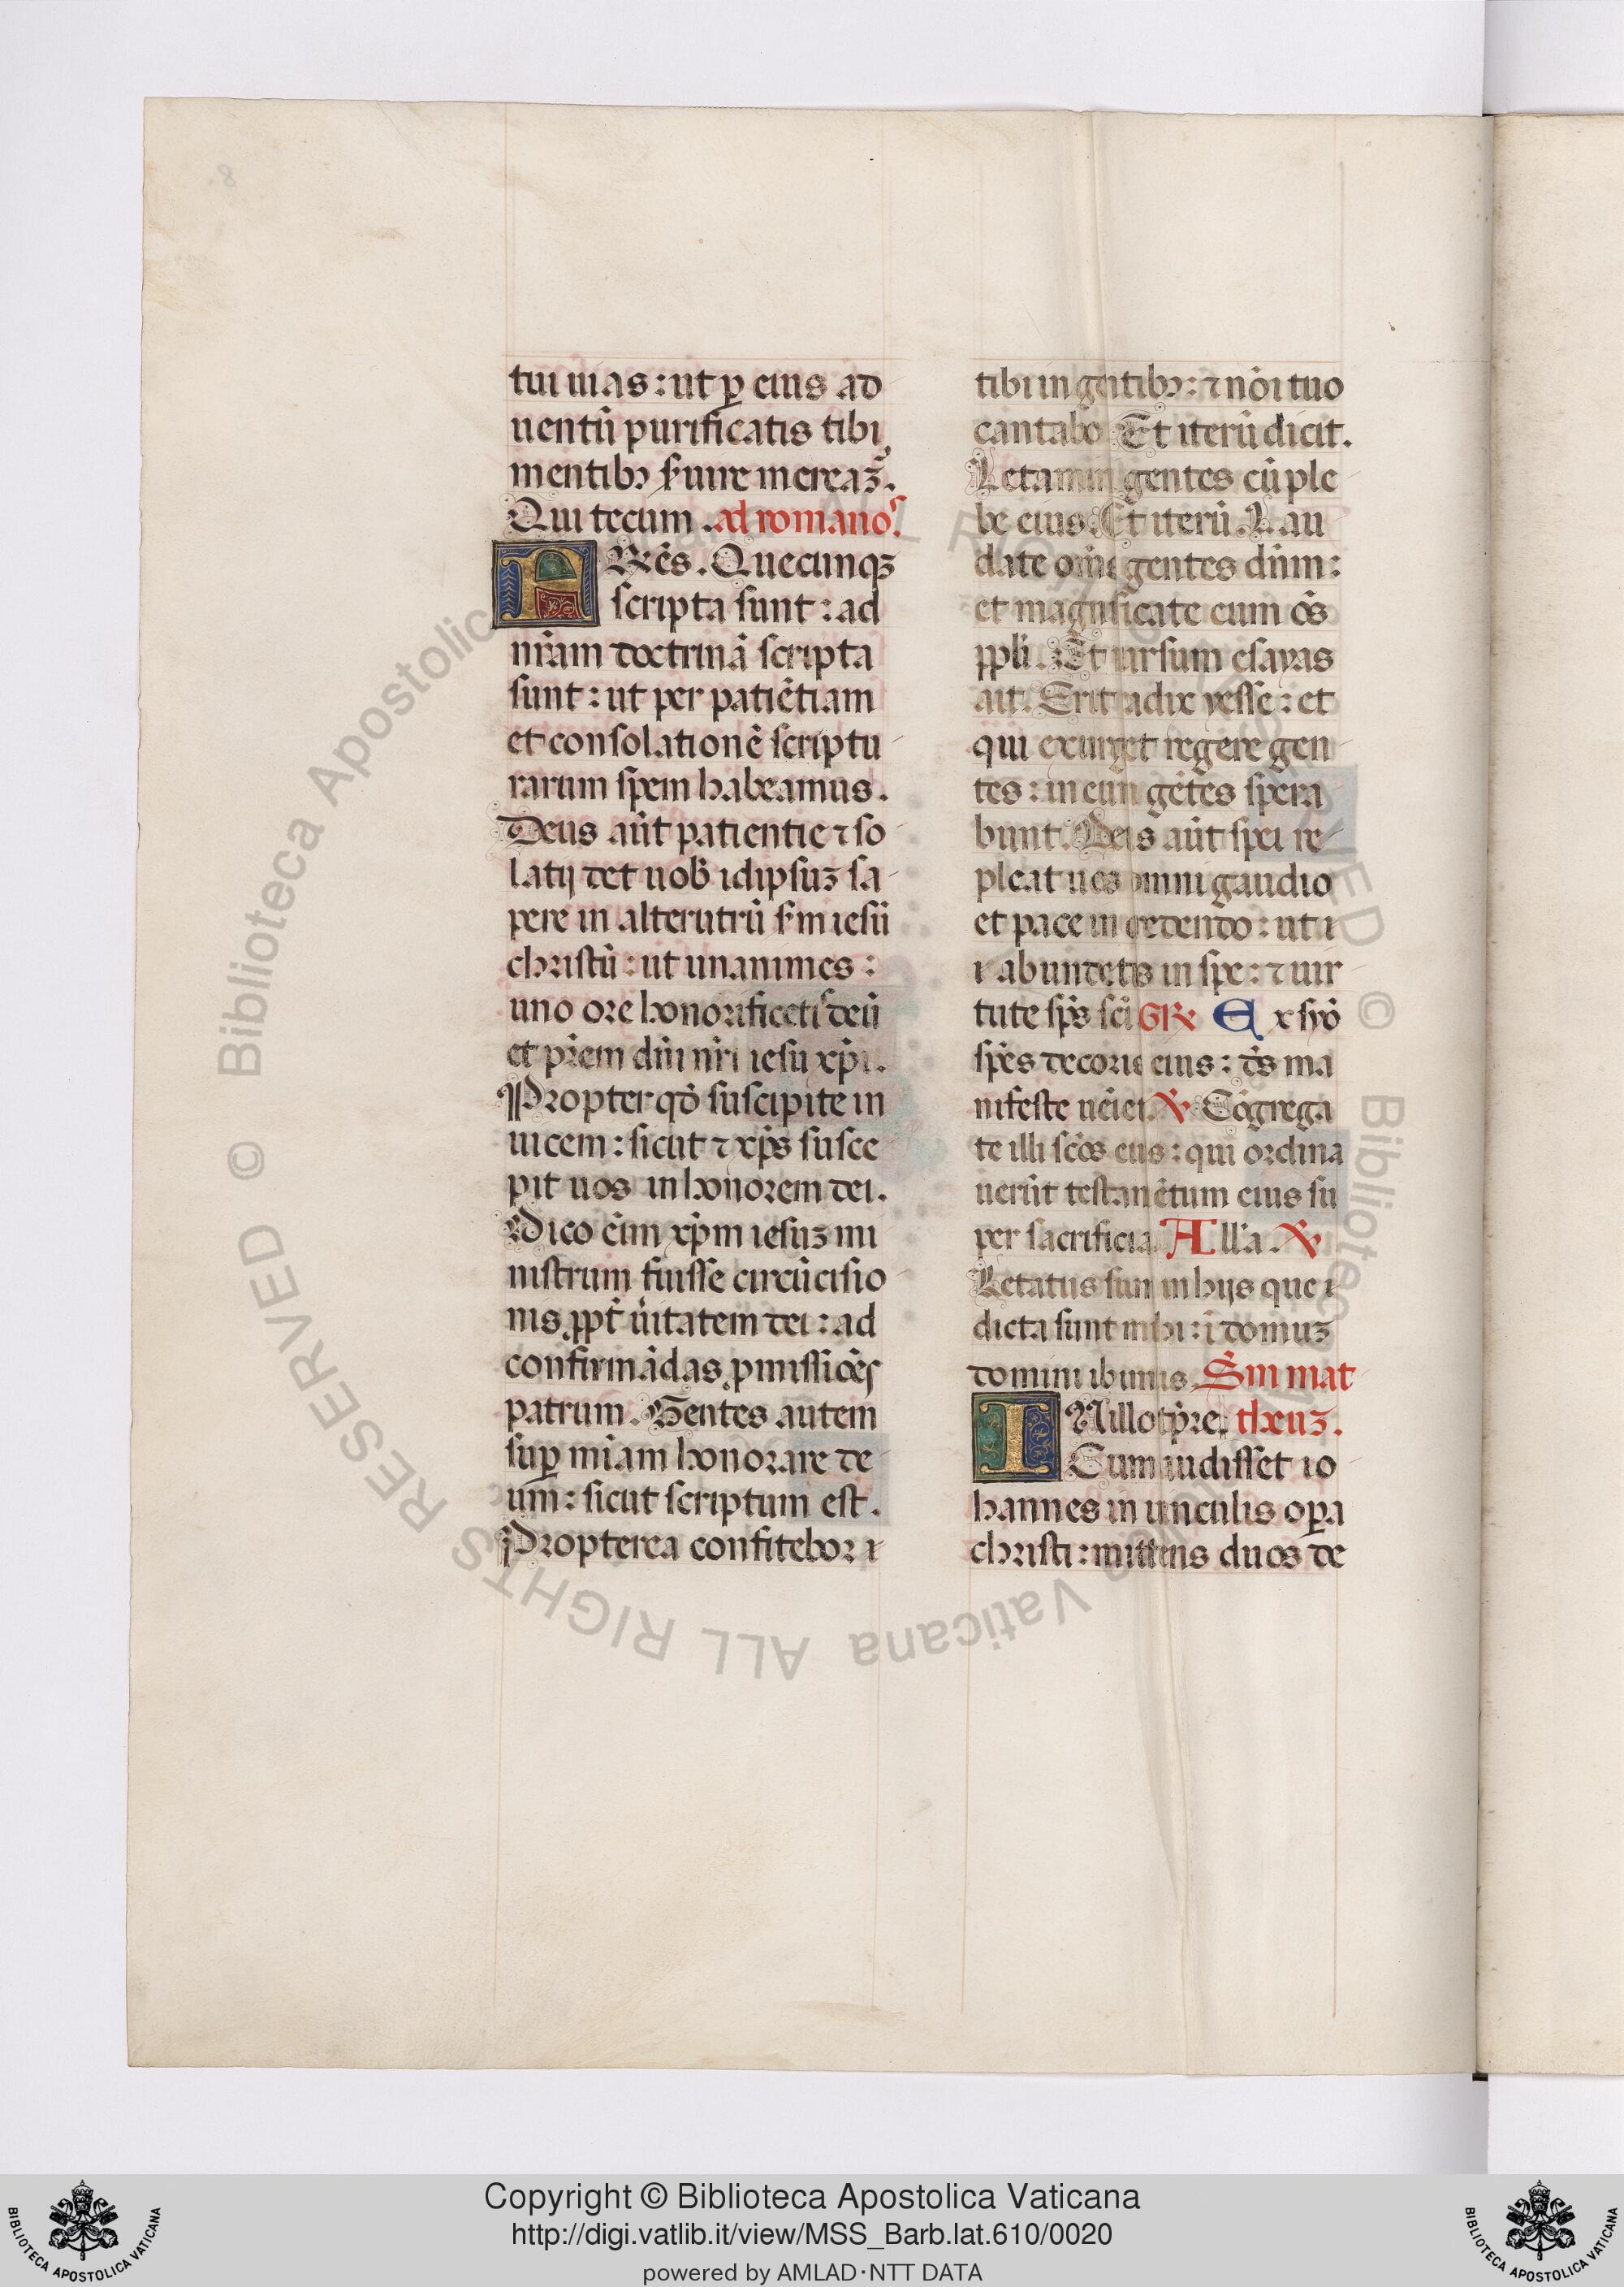 tui uias : ut ꝑ eius ad
uentū purificatis tibi
mentibꝫ ẜuire mereaꝫ̃.
Qui tecum . ad romanoꝰ.
FRēs . Quecunqꝫ
scripta sunt : ad
nr̄am doctrinā scripta
sunt : ut per patiētiam
et consolationē scriptu
rarum spem habeamus .
Deus aūt patientie ⁊ so
latij det uob̄ idipsuꝫ sa
pere in alterutrū ẜm iesū
christū : ut unanimes :
uno ore honorificetis deū
et pr̄em dn̄i nr̄i iesu xp̄i .
Propter qd̄ suscipite in
uicem : sicut ⁊ xp̄s susce
pit uos in honorem dei .
Dico ēim xp̄m iesuꝫ mi
nistrum fuisse circūcisio
nis ꝓpt̄ ūitatem dei : ad
confirmādas ꝓmissiōes
patrum . Gentes autem
suꝑ mi̅am honorare de
um : sicut scriptum est .
Propterea confitebor i
tibi in gentibꝫ : ⁊ nōi tuo
cantabo Et iterū dicit .
Letamini gentes cū ple
be eius . Et iterū . Lau
date om̄e gentes dn̄m :
et magnificate eum ōs
ppl̄i . Et rursum esayas
ait . Erit radix yesse : et
qui exurget regere gen
tes : in eum gētes spera
bunt . Deus aūt spei re
pleat uos omni gaudio
et pace in credendo : ut i
i abundetis in spe : ⁊ uir
tute sp̄s sc̄i GR Ex syō
spēs decoris eius : d̄s ma
nifeste uēiet ℣ Cōgrega
te illi sc̄os eius : qui ordina
uerūt testamētum eius su
per sacrificia All'a . ℣
Letatus sum in hijs que i
dicta sunt mihi : ī domuꝫ
domini ibimus . Sm̄ mat
INillo tp̄re . theuꝫ .
Cum audisset io
hannes in uinculis oꝑa
christi : mittens duos de
© Biblioteca Apostolica Vaticana ALL RIGHTS RESERVED © Biblioteca Apostolica Vaticana ALL RIGHTS RESERVED
Copyright © Biblioteca Apostolica Vaticana
http://digi.vatlib.it/view/MSS_Barb.lat.610/0020
powered by AMLAD·NTT DATA
BIBLIOTECA APOSTOLICA VATICANA
BIBLIOTECA APOSTOLICA VATICANA